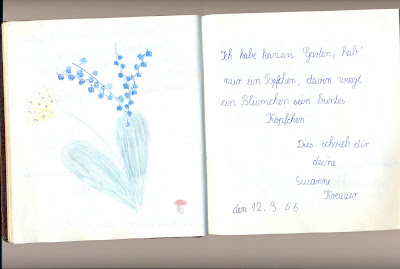 Ich habe keinen Garten, hab'
nur ein Töpfchen, darin wiegt
ein Blümchen sein buntes
Köpfchen
Dies schrieb dir
deine
Susanne
Kreuzer
den 12. 3. 66